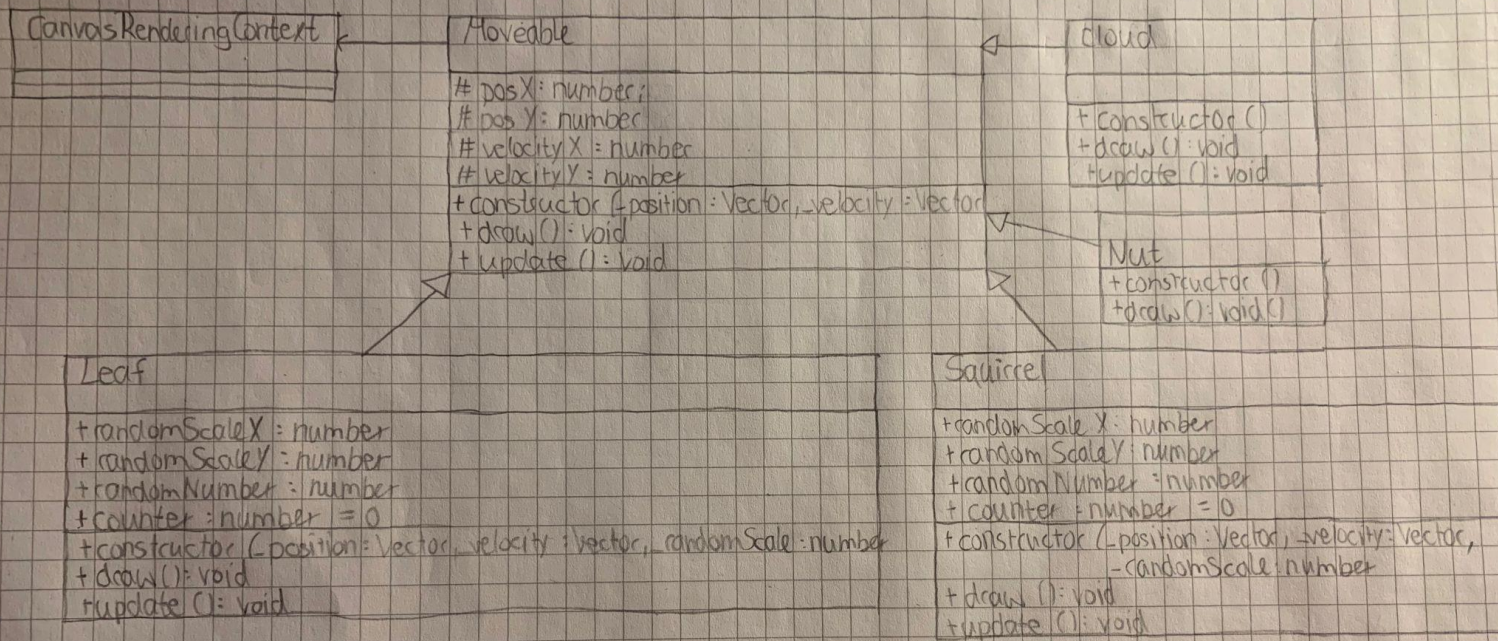 CanvasRenderingContext
Moveable
# posX : number;
# posY : number
# velocityX : number
# velocityY : number
+ constructor (_position : Vector, _velocity : Vector
+ draw () : void
+ update () : void
Cloud
+ constructor ()
+ draw () : void
+ update () : void
Nut
+ constructor ()
+ draw () : void ()
Leaf
+ randomScaleX : number
+ randomScaleY : number
+ randomNumber : number
+ counter : number = 0
+ constructor (_position : Vector, _velocity : Vector, _randomScale : number
+ draw () : void
+ update () : void
Squirrel
+ randomScaleX : number
+ randomScaleY : number
+ randomNumber : number
+ counter : number = 0
+ constructor (_position : Vector, _velocity : Vector,
_randomScale : number
+ draw () : void
+ update () : void